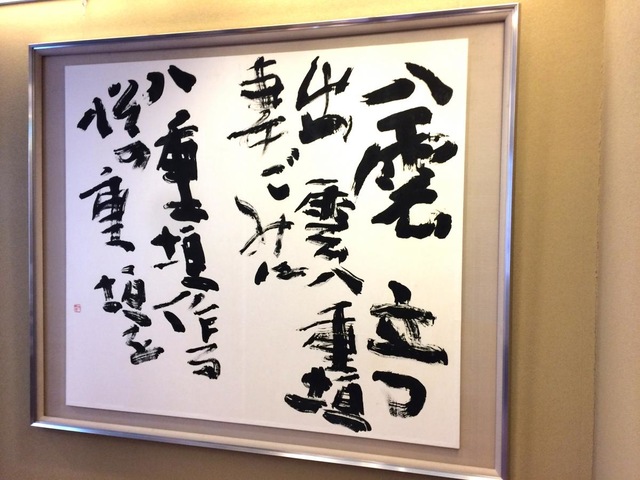 八雲立つ
出雲八重垣
妻ごみに
八重垣作る
の重垣を